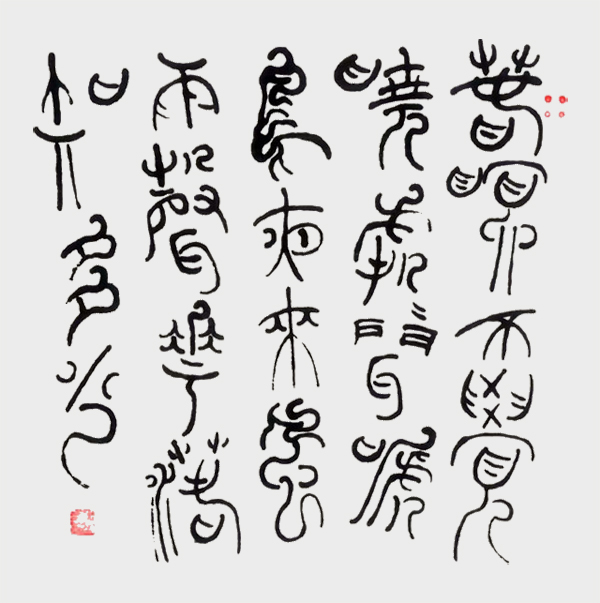 春眠不覺
曉處〻聞啼
鳥夜來風
雨聲華落
知多少